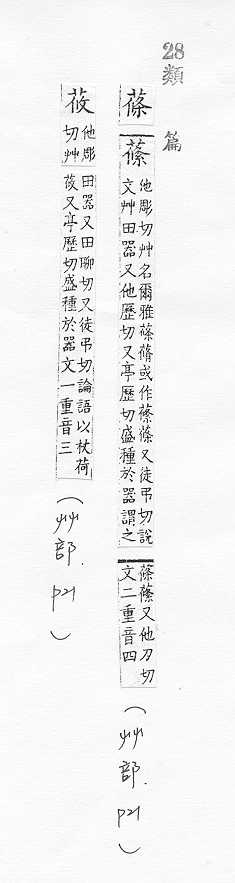 28類篇
蓧
蓧
他彫切艸名爾雅蓧蓨或作蓧蓧又徒弔切說
文艸田器又他歷切又亭歷切盛種於器謂之
蓧蓧又他刀切
文二重音四
(艸部.P21)
莜
他彫
切艸
田器又田聊切又徒弔切論語以杖荷
莜又亭歷切盛種於器文一重音三
(艸部.P21)